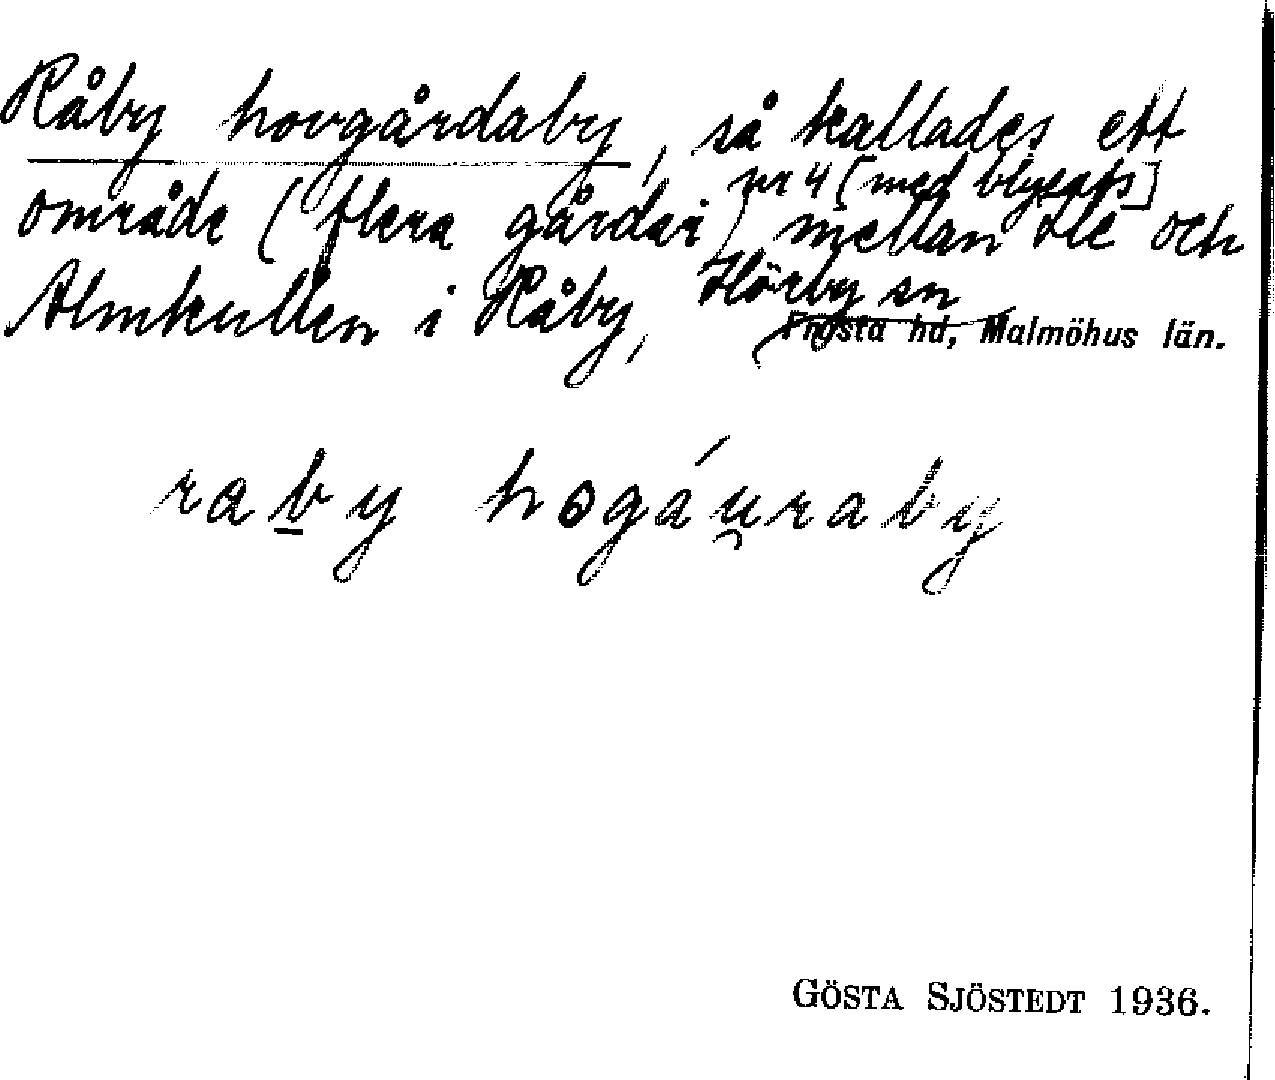 Råby hovgårdaby, så kallades ett
nr 4 [med blyerts]
område (flera gårdar) mellan Ole och
Almkullen i Råby, Hörby sn
Frosta hd, Malmöhus län.
raby hogáu̯raby
GÖSTA SJÖSTEDT 1936.